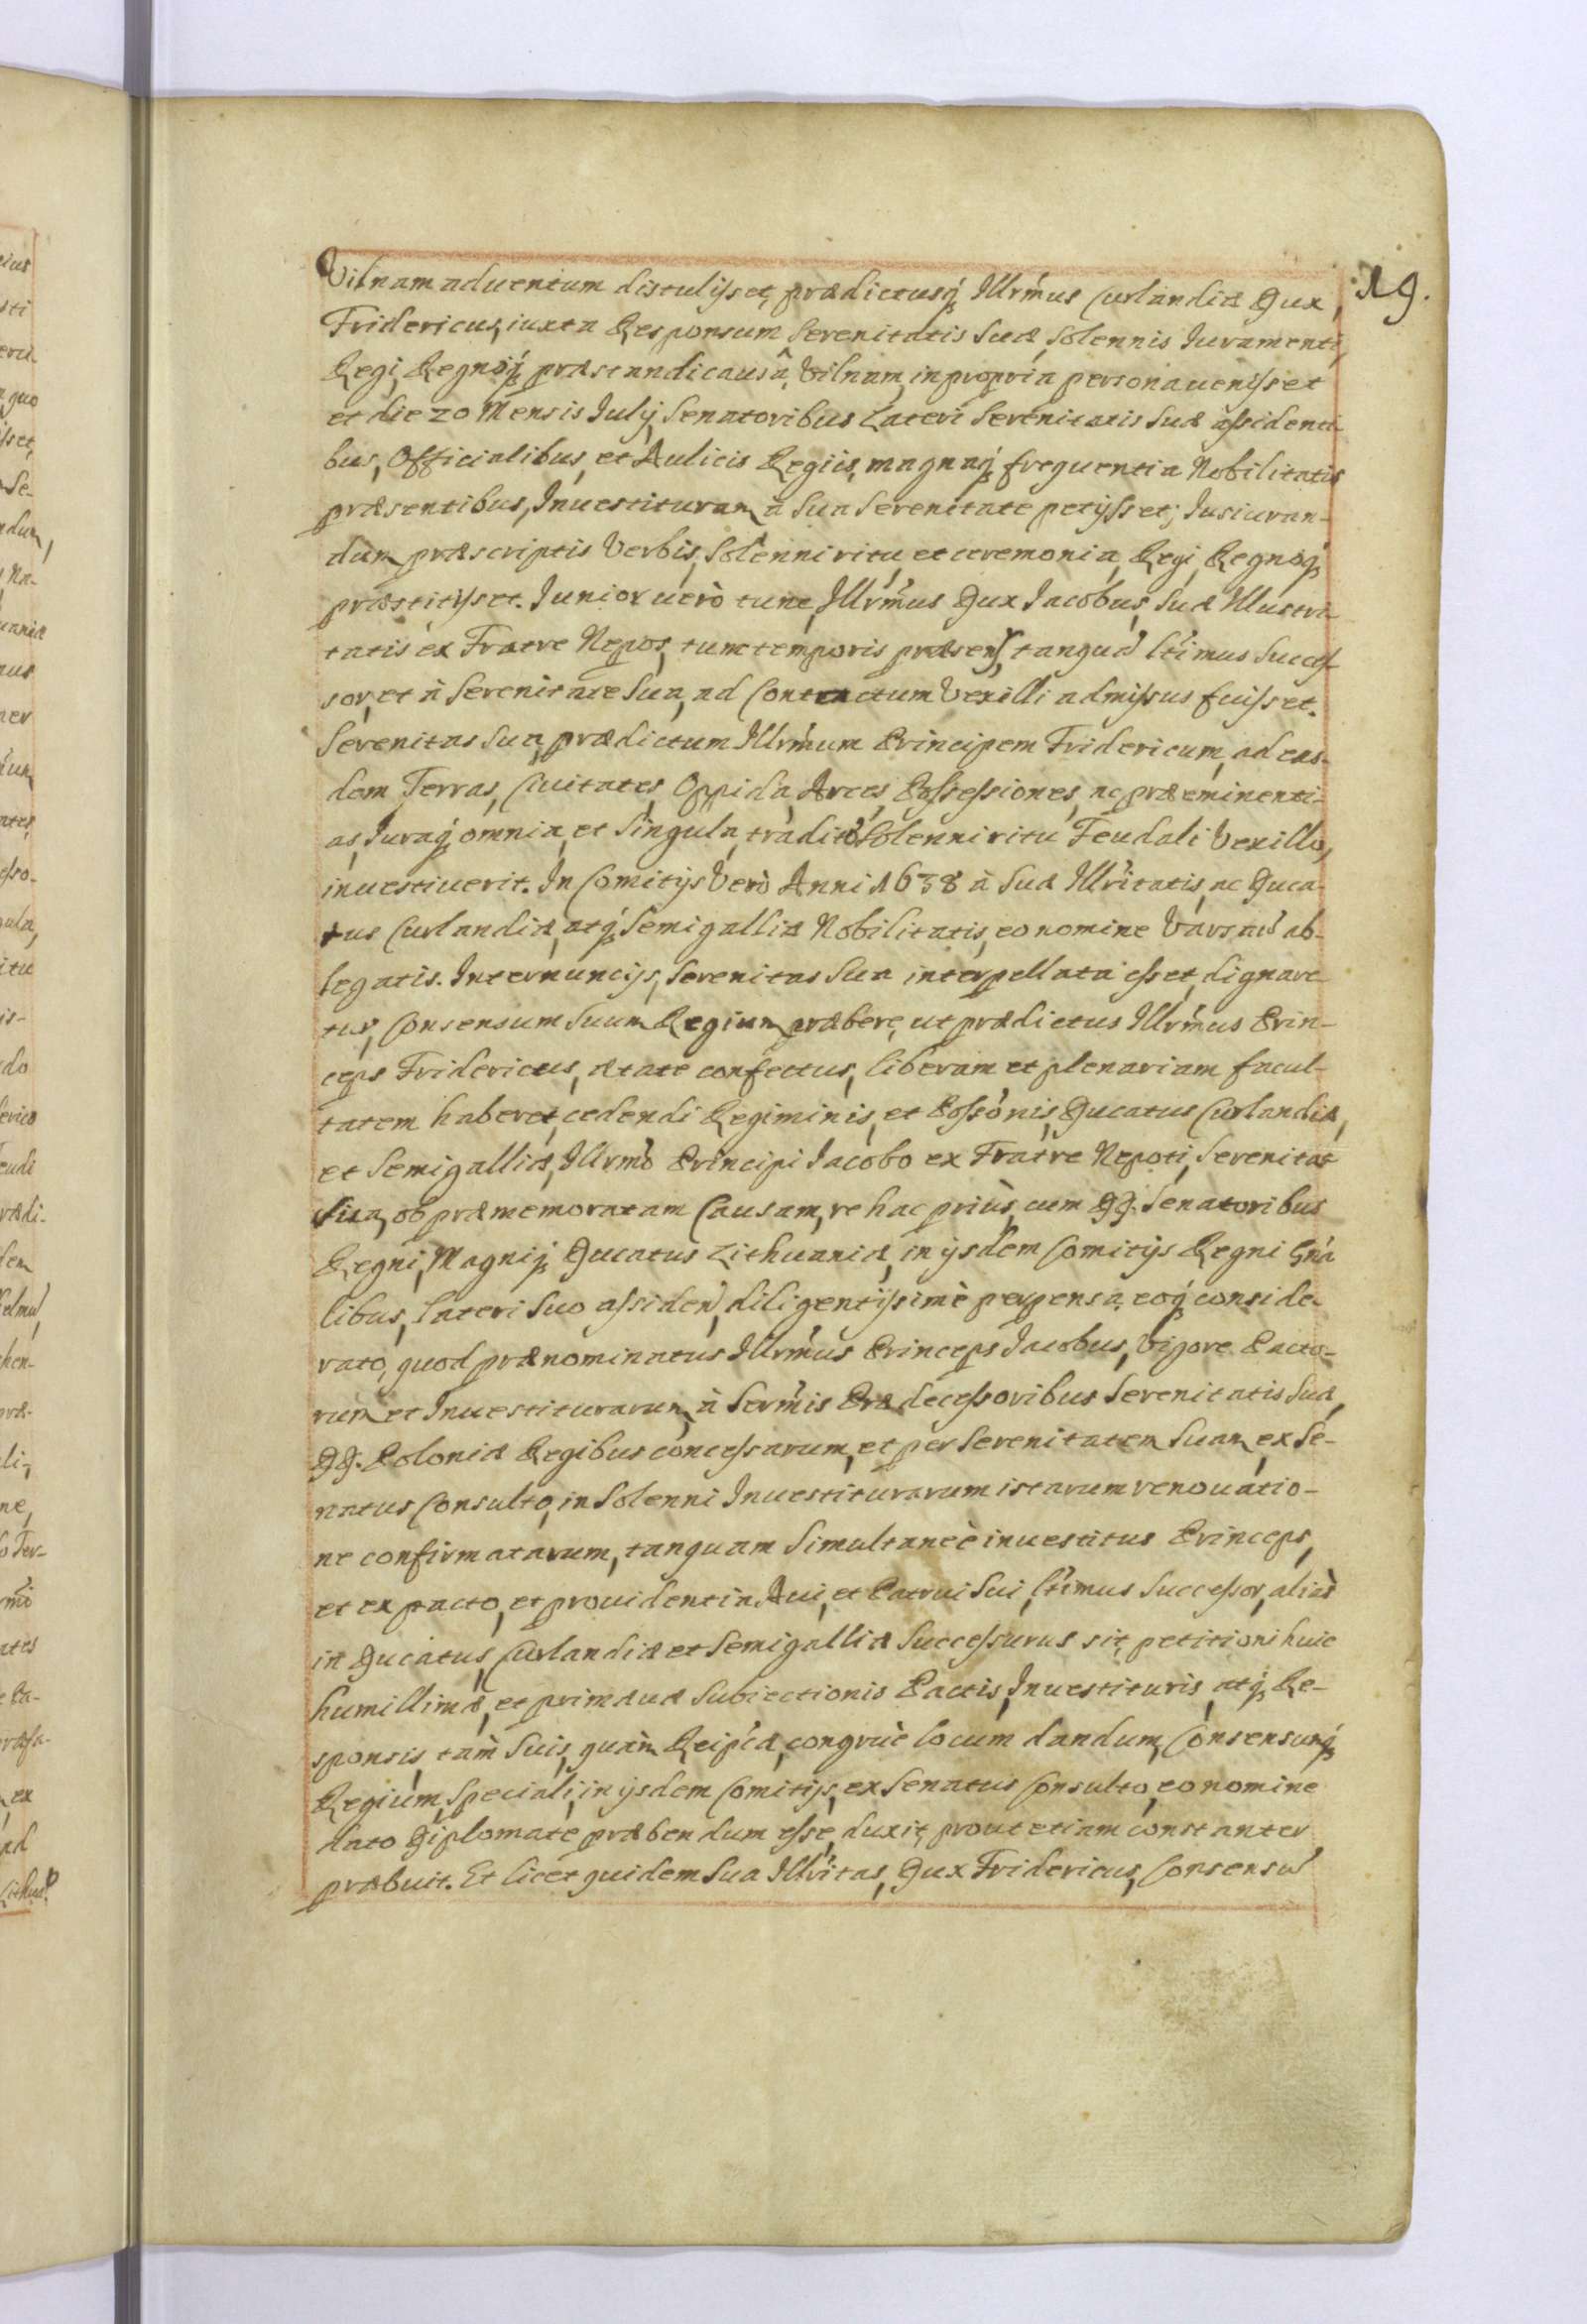 19.
Vilnam aduentum distulisset, prædictusq́ Illrm̃us Curlandiæ Dux,
Fridericus, iuxta Responsum Serenitatis Suæ, Solennis Iuramenti,
Regi, Regnoq́ præstandi causâ, Vilnam, in propria persona uenisset
et die 20 Mensis Iulÿ, Senatoribus Lateri Serenitatis Suæ assidenti-
bus, Officialibus, et Aulicis Regiis, magnaq́ frequentia Nobilitatis
præsentibus, Inuestituram à Sua Serenitate petÿsset; Iusiuran-
dum præscriptis Verbis, Solenni ritu, et ceremonia, Regi, Regnoq́
præstitisset. Iunior uerò tunc, Illrm̃us Dux Iacobus, Suæ Illustri-
tatis ex Fratre Nepos, tunc temporis præsens, tanquã ltimus Succes-
sor, et à Serenitate Sua, ad Contactum Vexilli admissus fuisset.
Serenitas Sua, prædictum Illrm̃um Principem Fridericum, ad eas-
dem Terras, Ciuitates, Oppida, Arces, Possessiones, ac præeminenti-
as, Iuraq́ omnia, et Singula, tradito Solenni ritu Feudali Vexillo,
inuestiuerit. In Comitÿs Verò Anni 1638 à Suæ Illritatis, ac Duca-
tus Curlandiæ, atq́ Semigalliæ Nobilitatis, eo nomine Varsauiã ab-
legatis. Internuncÿs, Serenitas Sua interpellata esset, dignare-
tur, Consensum Suum Regium præbere, ut prædictus Illrm̃us Prin-
ceps Fridericus, ætate confectus, liberam et plenariam facul-
tatem haberet, cedendi Regiminis, et Possónis, Ducatus Curlandiæ,
et Semigalliæ, Illrm̃o Principi Iacobo ex Fratre Nepoti, Serenitas
Sua, ob præmemoratam Causam, re hac priùs, cum DD. Senatoribus
Regni, Magniq́ Ducatus Lithuaniæ, in ÿsdem Comitÿs Regni Gńa
libus, Lateri Suo assideñ, diligentissimè perpensa, eoq́ conside-
rato, quod prænominatus Illrm̃us Princeps Iacobus, Vigore Pacto-
rum et Inuestiturarum, à Serm̃is Prædecessoribus Serenitatis Suæ,
DD. Poloniæ Regibus concessarum, et per Serenitatem Suam, ex Se-
natus Consulto, in Solenni Inuestiturarum istarum renouatio-
ne confirmatarum, tanquam Simultaneè inuestitus Princeps,
et ex pacto, et prouidentia Aui, et Patrui Sui, ltimus Successor, aliàs
in Ducatus, Curlandiæ et Semigalliæ Successurus sit, petitioni huic
humillimæ, et primæuæ Subiectionis Pactis, Inuestituris, atq́ Re-
sponsis, tam Suis, quàm Reipćæ, congruè locum dandum, Consensumq́
Regium, Speciali, in ÿsdem Comitÿs, ex Senatus Consulto, eo nomine
dato Diplomate præbendum esse, duxit, prout etiam constanter
præbuit. Et licet quidem Sua Illritas, Dux Fridericus, Consensũ